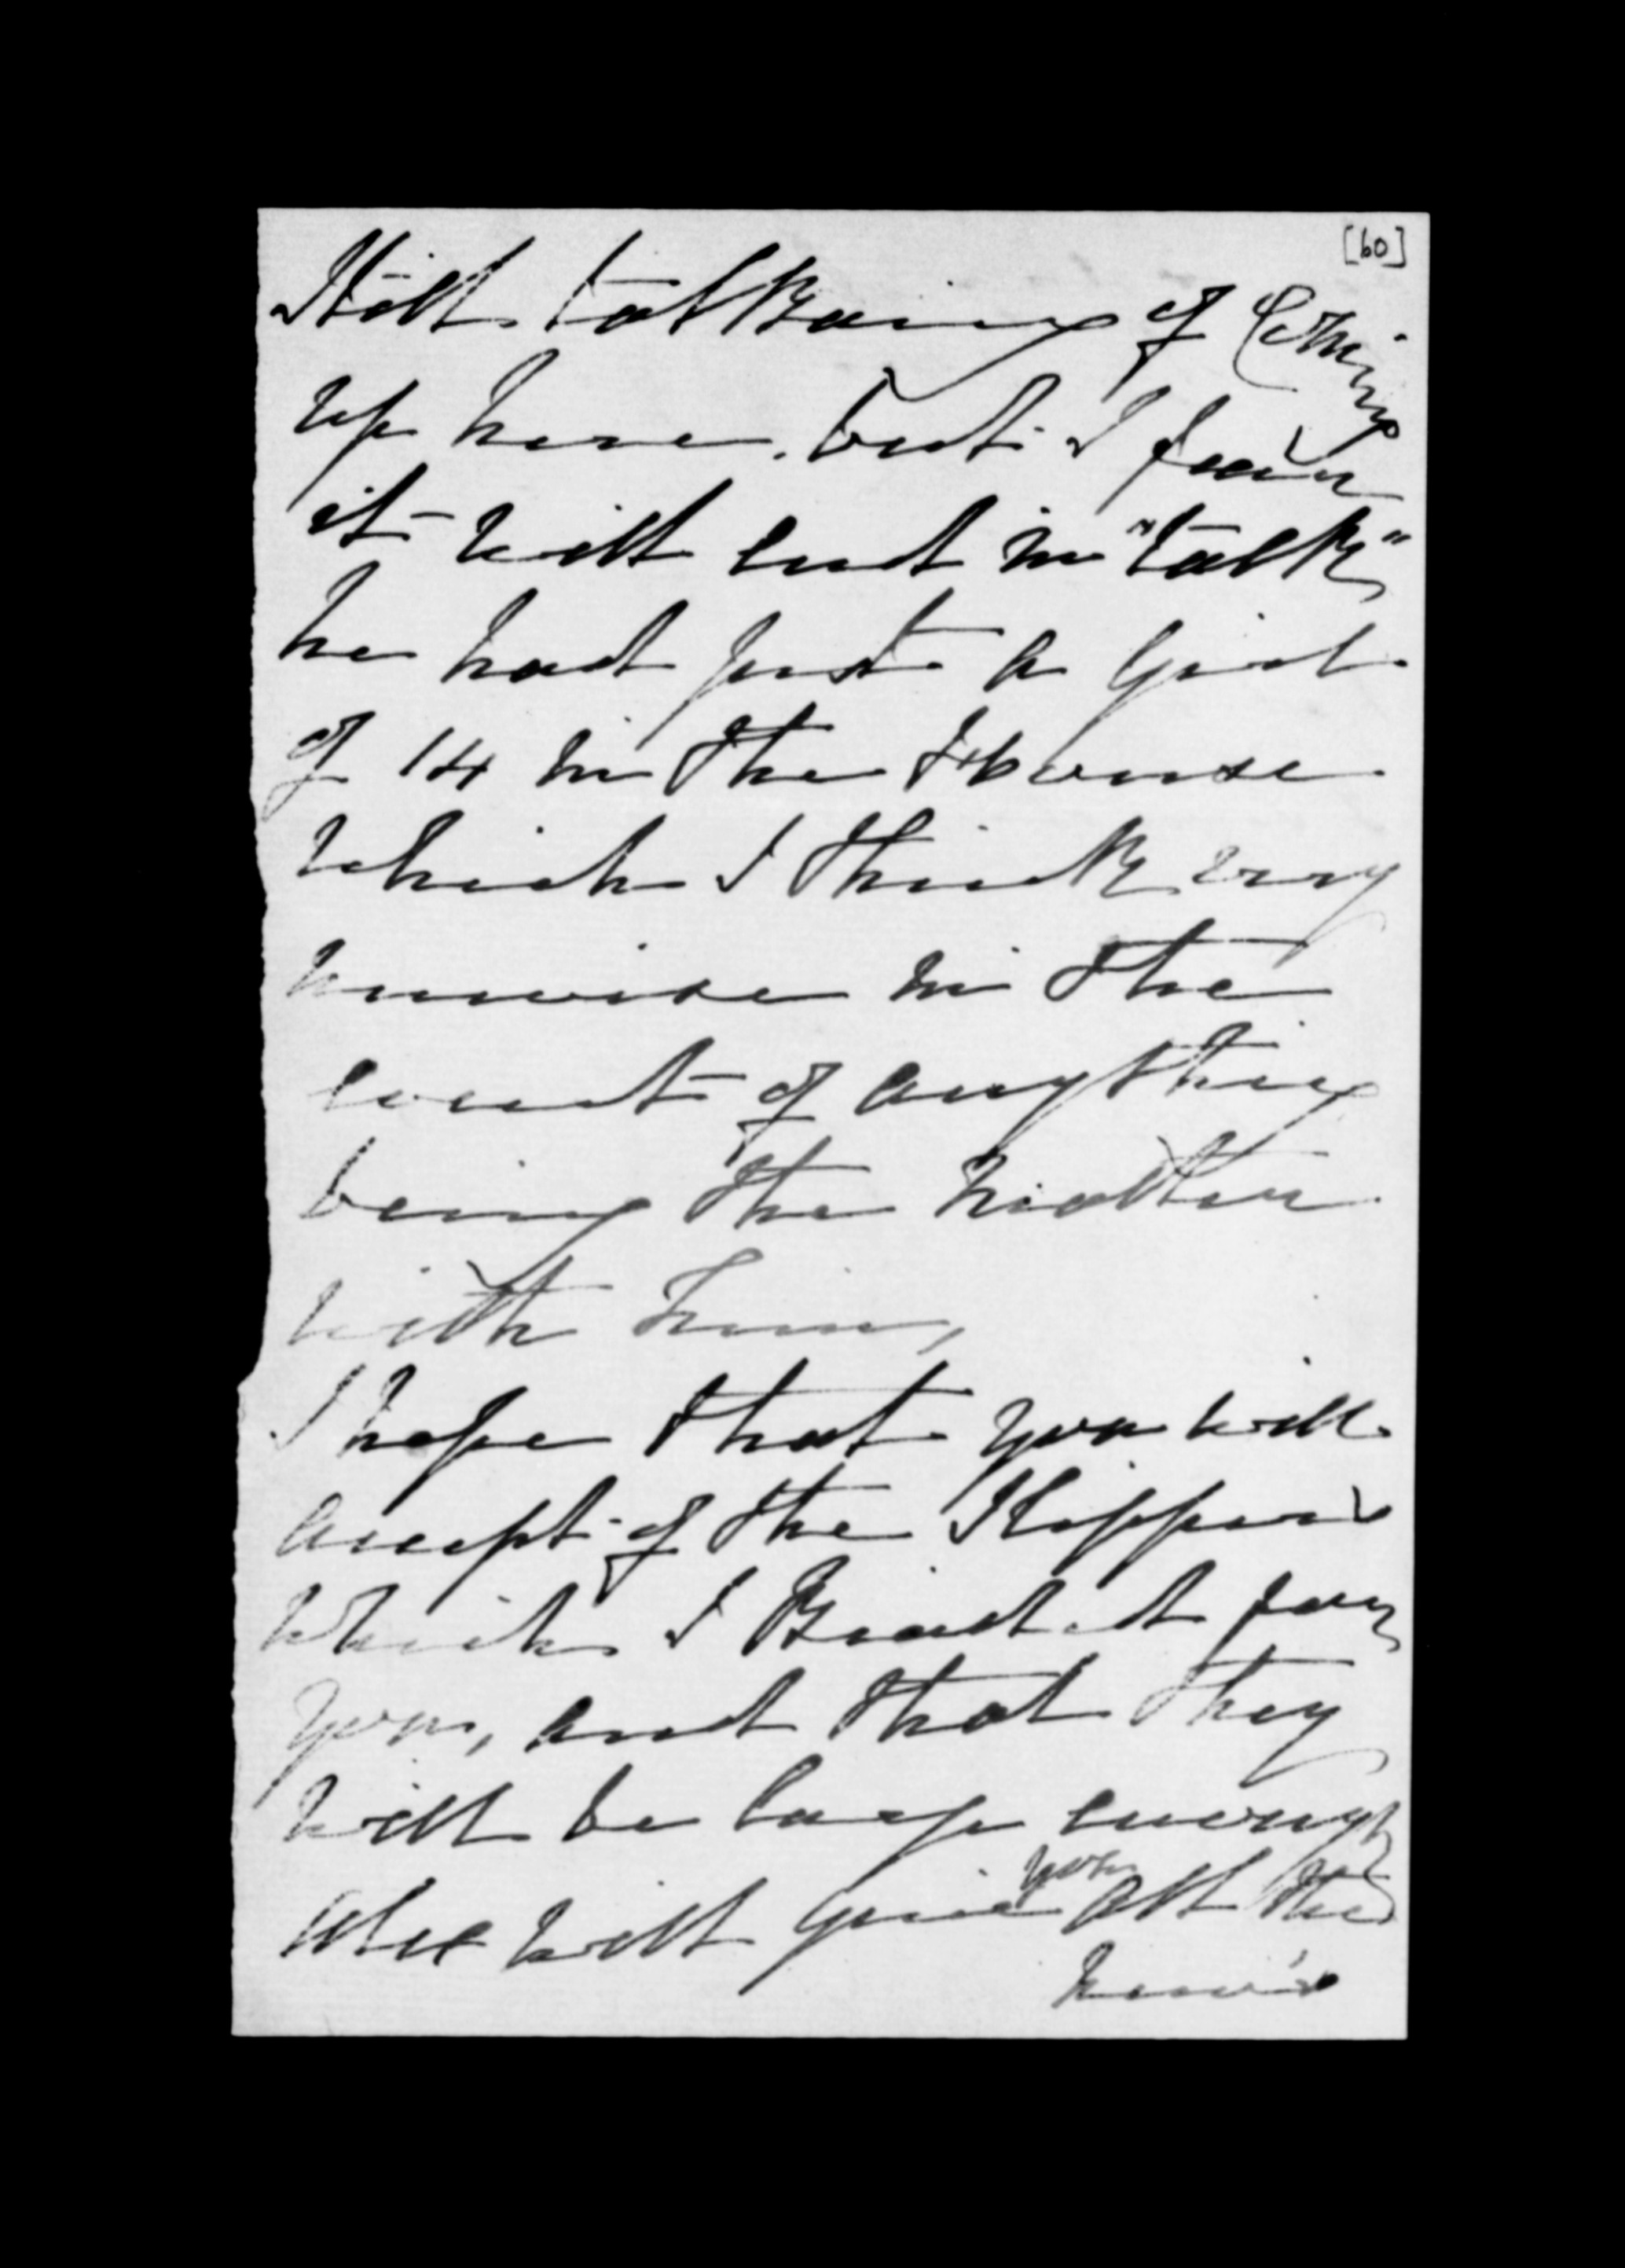 [60]
Still talking of Coming
up here. but I fear
it will end in "talk"
he had just a Girl
of 14 in the House
which I think very
unwise in the
event of anything
being the matter
with him,
I hope that you will
accept of the Slippers
which I Knitted for
you, and that they
will be large enough
Alec will give you all the
news